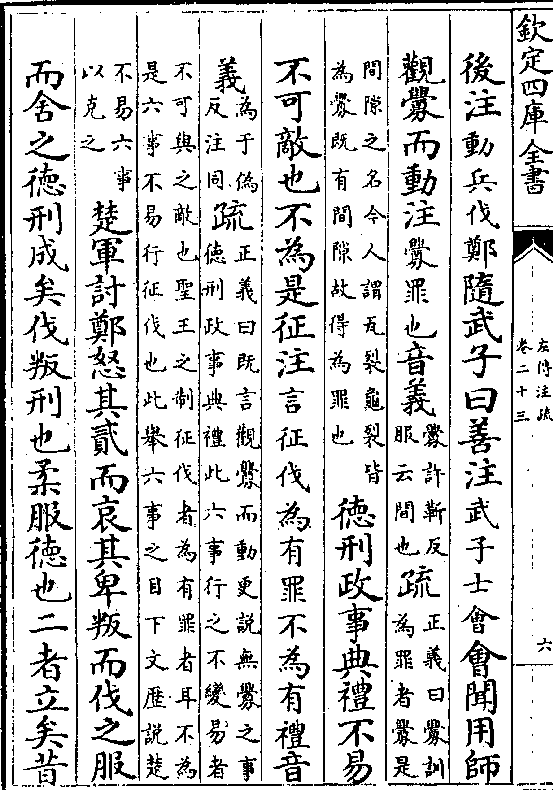 欽定四庫全書
左傳注疏
卷二十三
六
後注動兵伐鄭隨武子曰善注武子士會會聞用師
觀釁而動注釁罪也音義釁許靳反
服云間也疏正義曰釁訓
為罪者釁是
間隙之名今人謂瓦裂龜裂皆
為釁既有間隙故得為罪也德刑政事典禮不易
不可敵也不為是征注言征伐為有罪不為有禮音
義為于偽
反注同疏正義曰既言觀釁而動更說無釁之事
德刑政事典禮此六事行之不變易者
不可與之敵也聖王之制征伐者為有罪者耳不為
是六事不易行征伐也此舉六事之目下文歴說楚
不易六事
以克之楚軍討鄭怒其貳而哀其卑叛而伐之服
而舍之德刑成矣伐叛刑也柔服德也二者立矣昔